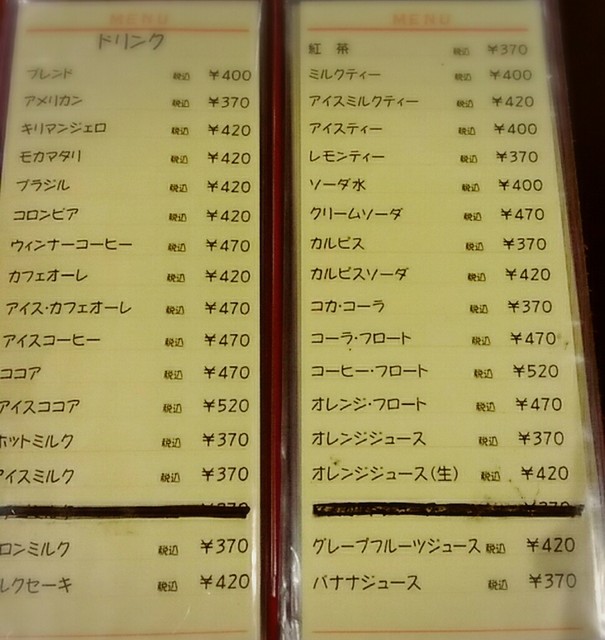 MENU
ドリンク
ブレンド 税込 ¥400
アメリカン 税込 ¥370
キリマンジェロ 税込 ¥420
モカマタリ 税込 ¥420
ブラジル 税込 ¥420
コロンビア 税込 ¥420
ウィンナーコーヒー 税込 ¥470
カフェオーレ 税込 ¥420
アイス・カフェオーレ 税込 ¥470
アイスコーヒー 税込 ¥470
ココア 税込 ¥470
アイスココア 税込 ¥520
ホットミルク 税込 ¥370
アイスミルク 税込 ¥370
ロンミルク 税込 ¥370
ルクセーキ 税込 ¥420
MENU
紅茶 税込 ¥370
ミルクティー 税込 ¥400
アイスミルクティー 税込 ¥420
アイスティー 税込 ¥400
レモンティー 税込 ¥370
ソーダ水 税込 ¥400
クリームソーダ 税込 ¥470
カルピス 税込 ¥370
カルピスソーダ 税込 ¥420
コカ・コーラ 税込 ¥370
コーラ・フロート 税込 ¥470
コーヒー・フロート 税込 ¥520
オレンジ・フロート 税込 ¥470
オレンジジュース 税込 ¥370
オレンジジュース(生) 税込 ¥420
グレープフルーツジュース 税込 ¥420
バナナジュース 税込 ¥370